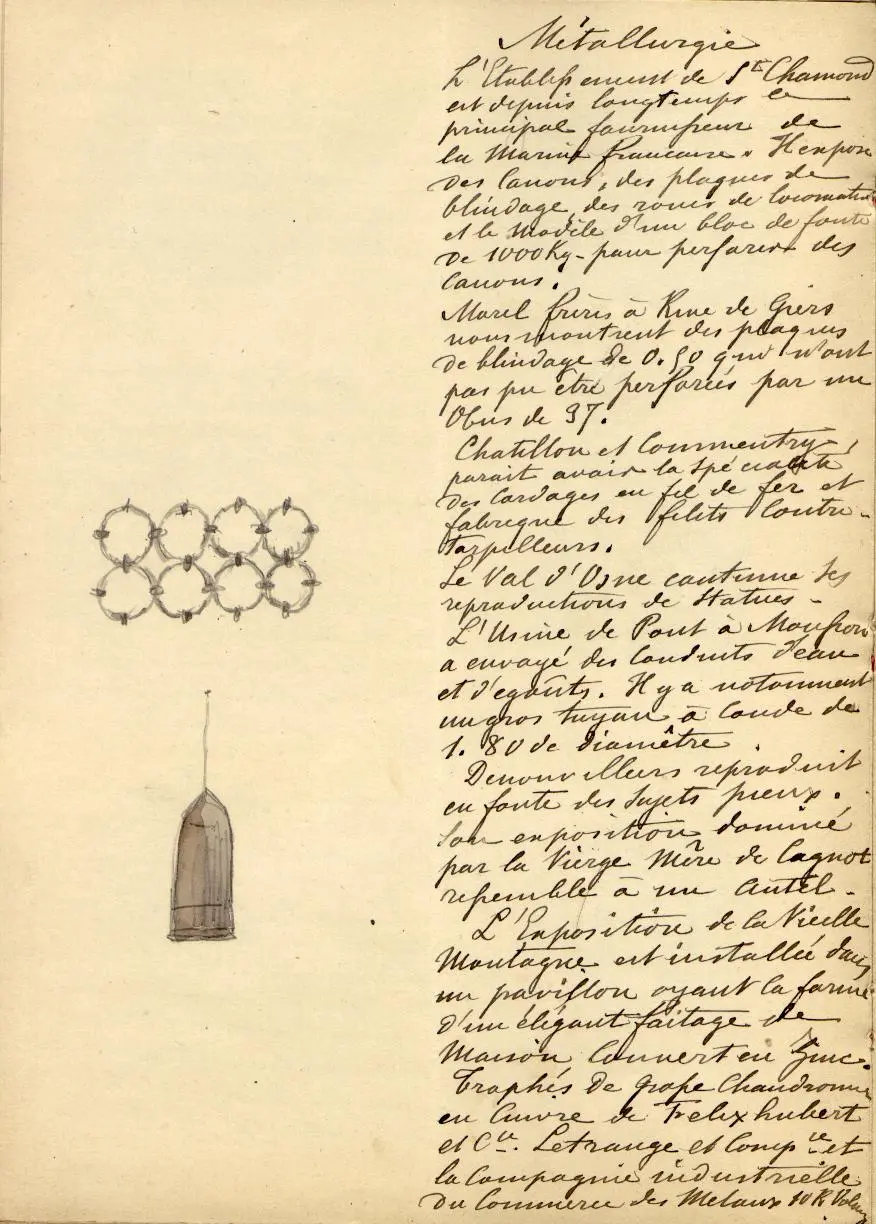 Métallurgie
L'Etablissement de St Chamond
est depuis longtemps le
principal fournisseur de
la Marine française. Il expose
des Canons, des plaques de
blindage, des roues de locomotive
et le modèle d'un bloc de fonte
de 1000 Kg- pour perforer des
Canons.
Marel frères à Rive de Giers
nous montrent des plaques
de blindage de 0.50 qui n'ont
pas pu être perforées par un
Obus de 37.
Chatillon et Commentry,
parait avoir la spécialité
des Cordages en fil de fer et
fabrique des filets Contre-
Torpilleurs.
Le Val d'Osne continue ses
reproductions de Statues-
L'Usine de Pont à Mousson
a envoyé des Conduits d'eau
et d'égoûts. Il y a notamment
un gros tuyau à Coude de
1.80 de diamêtre.
Denonvilliers reproduit
en fonte des Sujets pieux.
Son exposition dominé
par la Vierge Mère de Cagnot
ressemble à un Autel-
L'Exposition de la Vieille
Montagne est installée dans
un pavillon ayant la forme
d'un élégant faitage de
Maison Couvert en Zinc.
Trophés de Grosse Chaudronnerie
en Cuivre de Felix hubert
et Cie. Letrange et Compie et
la Compagnie industrielle
du Commerce des Metaux 10 R